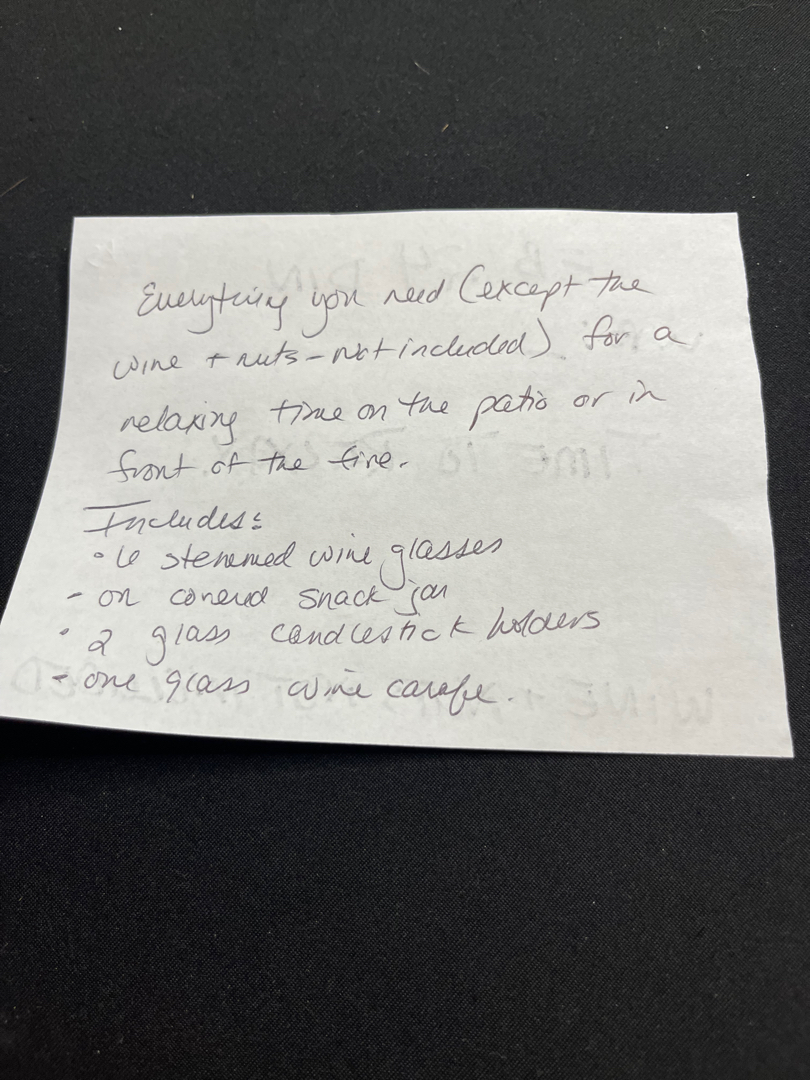 Everything you need (except the
wine + nuts - not included) for a
relaxing time on the patio or in
front of the fire.
Includes:
• 6 stemmed wine glasses
- on covered snack jar
• 2 glass candlestick holders
- one glass wine carafe.